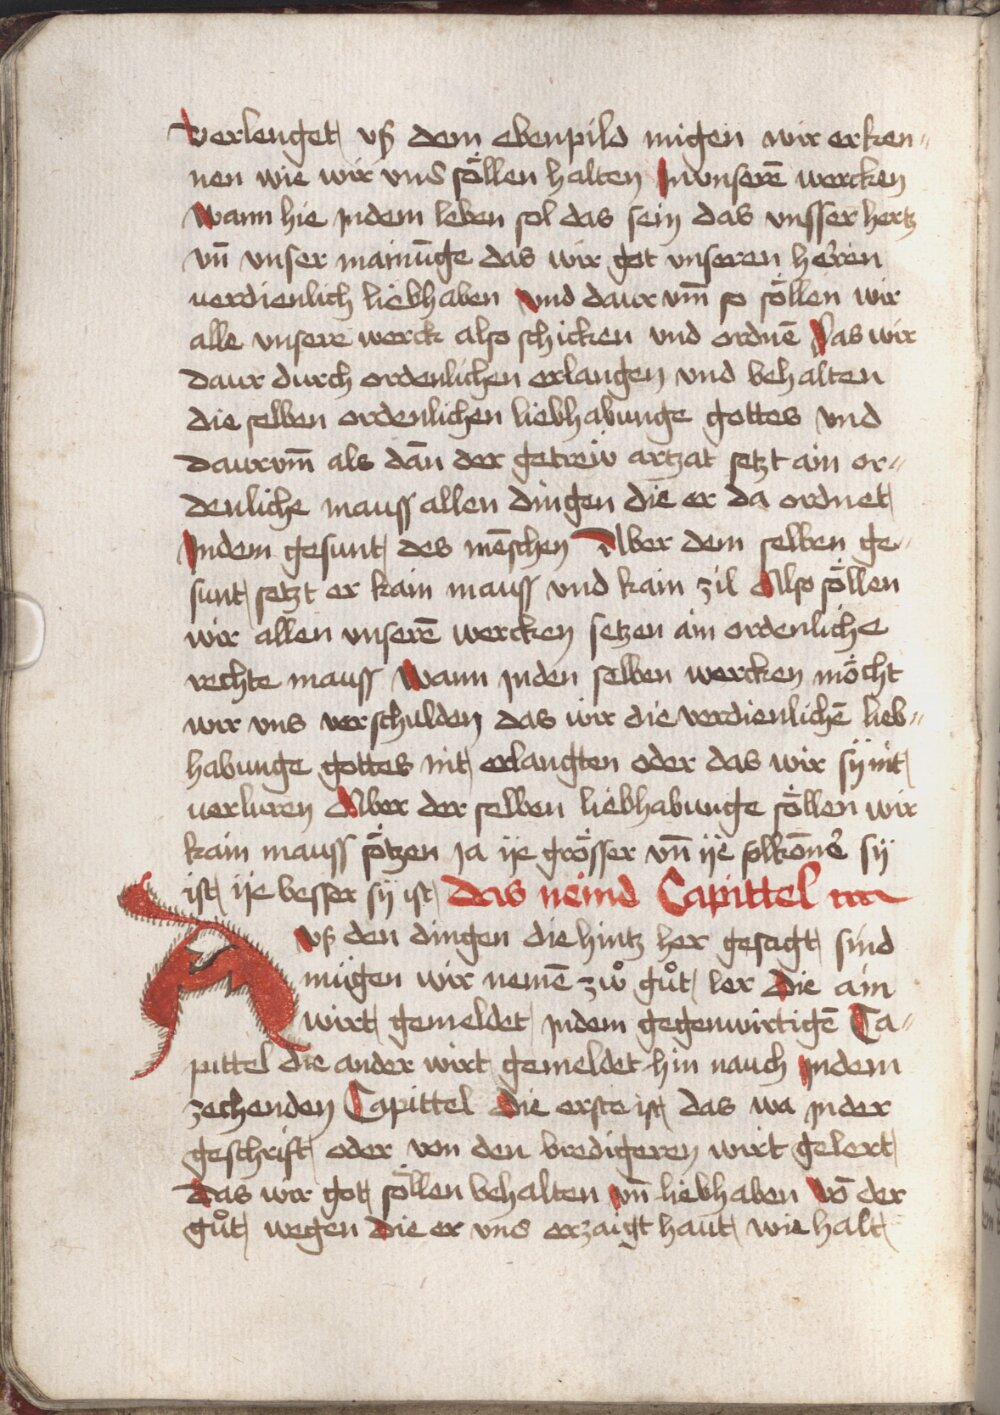 verlenget vß dem ebenpild migen wir erken„
nen wie wir vnd söllen halten Jn vnserē wercken
Wann hie jndem leben sol das sein das vnsser hertz
vn̄ vnser mainūge das wir got vnseren heren
uerdienlich liebhaben Vnd daur vm̄ so söllen wir
alle vnsere werck also schicken vnd ordnē Das wir
daur durch ordenlichen erlangen vnd behalten
die selben ordenlichen liebhabunge gottes vnd
daurvm̄ als dān der getreiv artzat setzt ain or„
denliche mauss allen dingen die er da ordnet
Jndem gesunt des mēschen Aber dem selben ge„
sunt setzt er kain mauss vnd kain zil Also söllen
wir allen vnserē wercken setzen ain ordenliche
rechte mauss Wann jnden selben wercken möcht
wir vns verschulden das wir die verdienlichē lieb„
habunge gottes nit erlangten oder das wir sÿ nit
uerluren Aber der selben liebhabunge söllen wir
kain mauss sötzen ja ije grösser vn̄ ije volkōmē sÿ
ist ije besser sÿ ist das neind Capittel
Avß den dingen die hintz her gesagt sind
mügen wir nemē zwͦ gůt ler Die ain
wirt gemeldet jndem gegenwirtigē Ca„
pittel die ander wirt gemeldet hin nauch jndem
zechenden Capittel Die erste ist das wa jnder
geschrift oder von den bredigeren wirt gelert
Das wir got söllen behalten vn̄ liebhaben Vō der
gůt wegen die er vns erzaigt haut wie halt